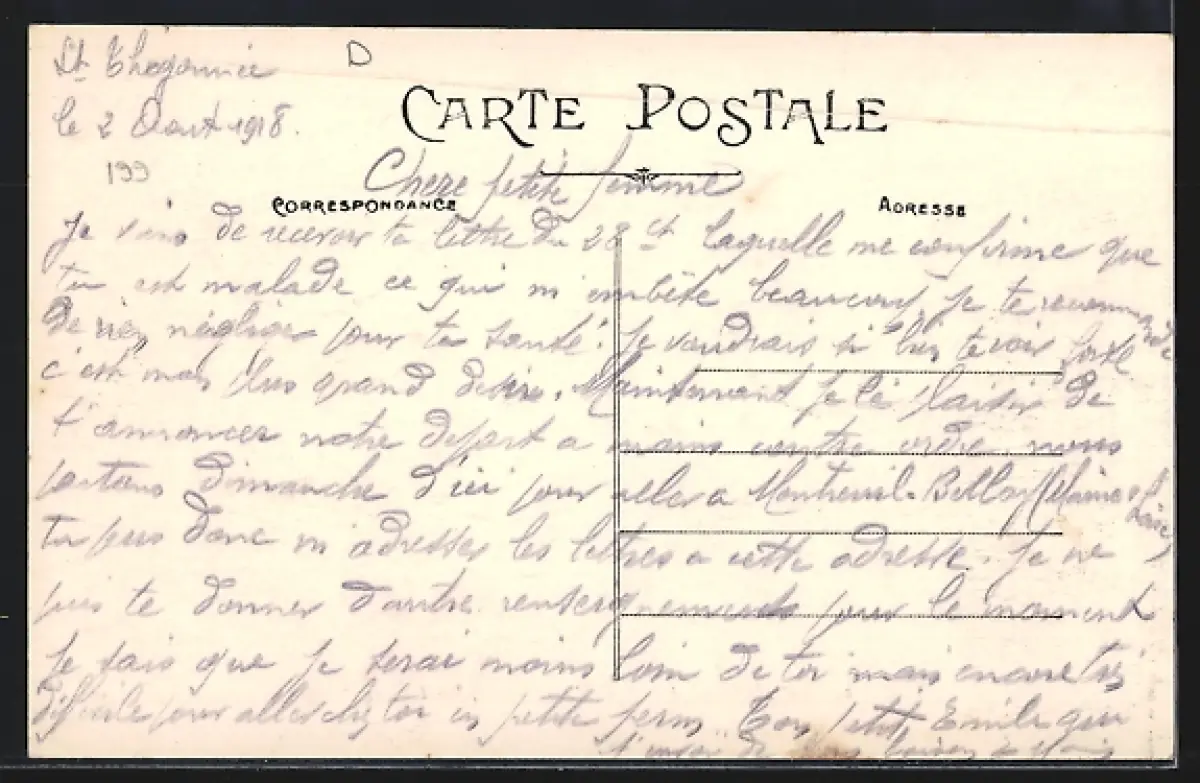 St Thégonnec
D
le 2 Aout 1918.
199
CARTE POSTALE
Chere petite femme
CORRESPONDANCE
ADRESSE
Je viens de recevoir ta lettre du 28 ct laquelle me confirme que
tu est malade ce qui m embète beaucoup je te recommande
de rien négliger pour ta santé. Je voudrais si bien te voir forte
c'est mon plus grand desire. Maintenant je le plaisir de
t'annoncer notre depart a moins contre ordre nous
partons Dimanche d'ici pour aller a Montreuil-Bellay (Maine et Loire)
tu peus donc m adresser les lettres a cette adresse. Je ne
puis te donner d'autre renseignements pour le moment
Je sais que je serai moins loin de toi mais encore très
difficile pour aller chez toi en petite perm. Ton petit Emile qui
t'envoi de baisers